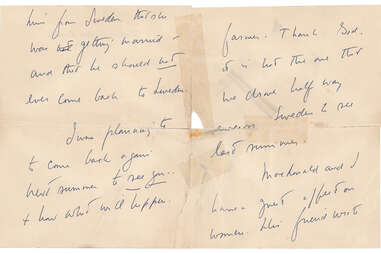 him from Sweden that she
was not getting married -
and that he should not
ever come back to Sweden.
I was planning to
to come back again
next summer to see you..
+ how what will happen.
farmer. Thank God.
it is not the one that
we drove half way
Sweden to see
last summer.
Macdonald and I
have a great effect on
women. His friend wrote